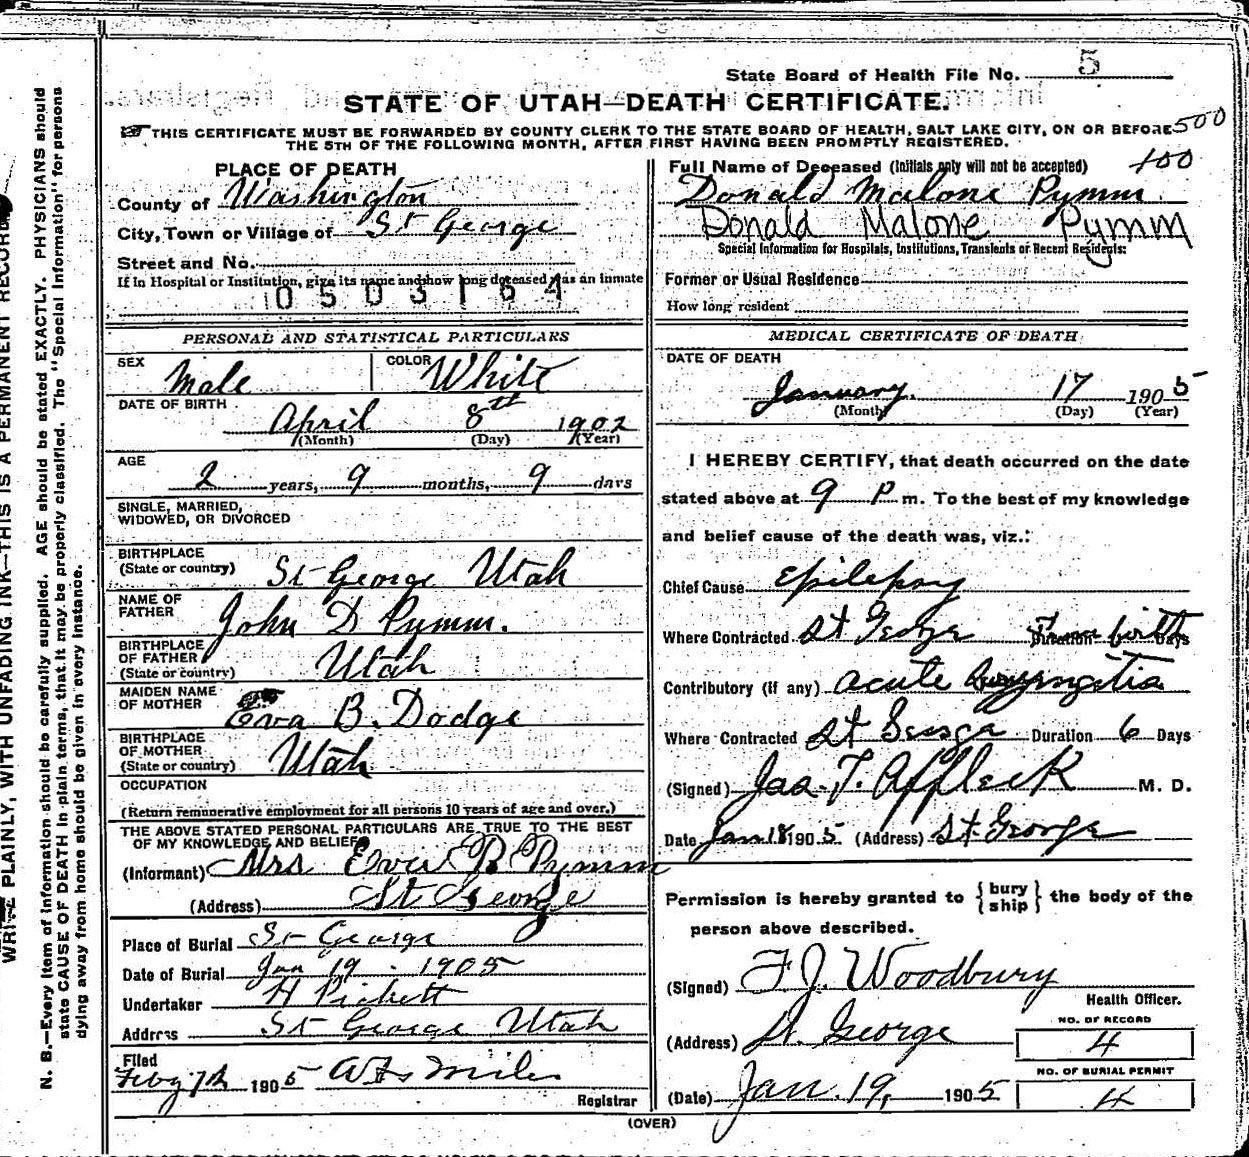 State Board of Health File No. 5
STATE OF UTAH—DEATH CERTIFICATE.
THIS CERTIFICATE MUST BE FORWARDED BY COUNTY CLERK TO THE STATE BOARD OF HEALTH, SALT LAKE CITY, ON OR BEFORE
THE 5TH OF THE FOLLOWING MONTH, AFTER FIRST HAVING BEEN PROMPTLY REGISTERED.
500
100
PLACE OF DEATH
County of Washington
City, Town or Village of St George
Street and No.
If in Hospital or Institution, give its name and show how long deceased was an inmate
0503164
Full Name of Deceased (Initials only will not be accepted)
Donald Malone Pymm
Donald Malone Pymm
Special Information for Hospitals, Institutions, Transients or Recent Residents:
Former or Usual Residence
How long resident
PERSONAL AND STATISTICAL PARTICULARS
SEX Male COLOR White
DATE OF BIRTH
April 8th 1902
(Month) (Day) (Year)
AGE
2 years, 9 months, 9 days
SINGLE, MARRIED,
WIDOWED, OR DIVORCED
BIRTHPLACE
(State or country) St George Utah
NAME OF
FATHER John D Pymm.
BIRTHPLACE
OF FATHER
(State or country) Utah
MAIDEN NAME
OF MOTHER Eva B. Dodge
BIRTHPLACE
OF MOTHER
(State or country) Utah
OCCUPATION
(Return remunerative employment for all persons 10 years of age and over.)
THE ABOVE STATED PERSONAL PARTICULARS ARE TRUE TO THE BEST
OF MY KNOWLEDGE AND BELIEF
(Informant) Mrs Eva B Pymm
(Address) St George
Place of Burial St George
Date of Burial Jan 19 - 1905
Undertaker H Pickett
Address St George Utah
Filed
Feby 7th 1905
Registrar
MEDICAL CERTIFICATE OF DEATH
DATE OF DEATH
January 17 1905
(Month) (Day) (Year)
I HEREBY CERTIFY, that death occurred on the date
stated above at 9 P m. To the best of my knowledge
and belief cause of the death was, viz.:
Chief Cause Epilepsy
Where Contracted St George Duration From birth Days
Contributory (if any) acute
Where Contracted St George Duration 6 Days
(Signed) Jas. T. Affleck M. D.
Date Jan 18 1905 (Address) St. George
Permission is hereby granted to { bury
ship } the body of the
person above described.
(Signed) F J Woodbury
Health Officer.
(Address) St. George
NO. OF RECORD
4
NO. OF BURIAL PERMIT
4
(Date) Jan. 19, 1905
(OVER)
N. B.—Every item of information should be carefully supplied. AGE should be stated EXACTLY. PHYSICIANS should
state CAUSE OF DEATH in plain terms, that it may be properly classified. The "Special Information" for persons
dying away from home should be given in every instance.
WRITE PLAINLY, WITH UNFADING INK—THIS IS A PERMANENT RECORD